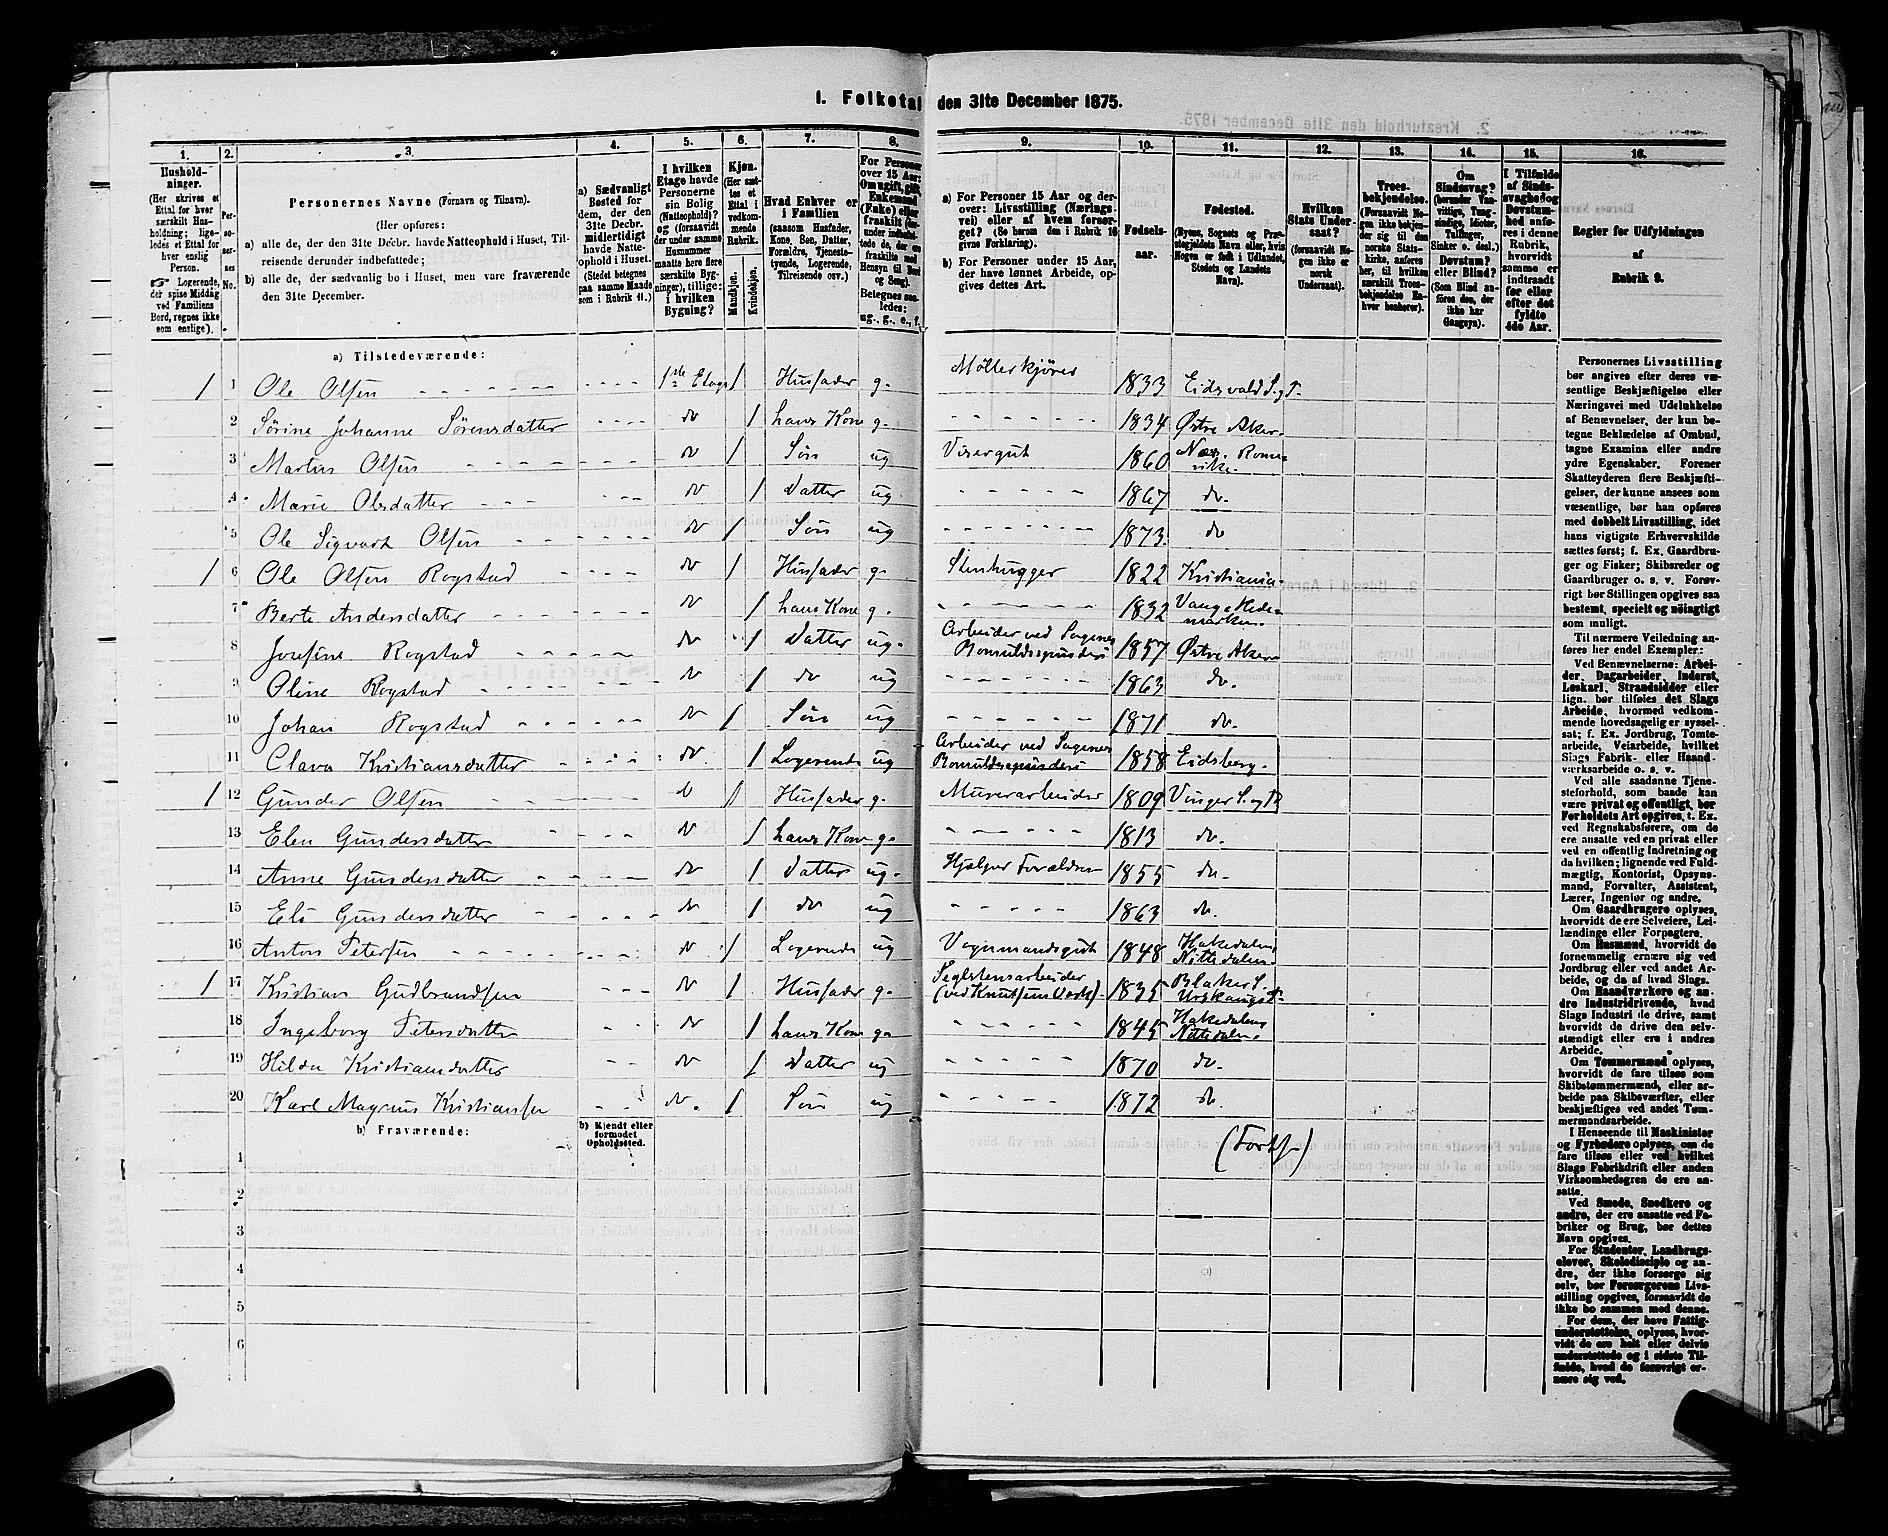 1. Folketal den 31te December 1875.
1. 2. 3. 4. 5. 6. 7. 8. 9. 10. 11. 12. 13. 14. 15. 16.
Hushold-
ninger.
(Her skrives et
Ettal for hver
særskilt Hus-
holdning; lige-
ledes et Ettal for
hver enslig
Person.
☞ Logerende,
der spise Middag
ved Familiens
Bord, regnes ikke
som enslige).
Per-
so-
ner-
nes
No.
Personernes Navne (Fornavn og Tilnavn).
(Her opføres:
a) alle de, der den 31te Decbr. havde Natteophold i Huset, Til-
reisende derunder indbefattede;
b) alle de, der sædvanlig bo i Huset, men vare fraværende
den 31te Decbr.
a) Sædvanligt
Bosted for
dem, der den
31te Decbr.
midlertidigt
havde Natte-
ophold i Huset.
(Stedet betegnes
paa samme Maade
som i Rubrik 11.)
I hvilken
Etage havde
Personerne
sin Bolig
(Natteophold)?
og (forsaavidt
der under samme
Husnummer
maatte høre flere
særskilte Byg-
ninger), tillige:
i hvilken
Bygning?
Kjøn.
(Her sæt-
tes et
Ettal i
vedkom-
mende
Rubrik.
Mandkjøn.
Kvindekjøn.
Hvad Enhver er
i Familien
(saasom Husfader,
Kone, Søn, Datter,
Forældre, Tjeneste-
tyende, Logerende,
Tilreisende osv.)
For Personer
over 15 Aar:
Om ugift, gift,
Enkemand
(Enke) eller
fraskilt (her-
under indbefat-
tede de, der ere
fraskilte med
Hensyn til Bord
og Seng).
Betegnes saa-
ledes:
ug., g., e., f.
a) For Personer 15 Aar og der-
over: Livsstilling (Nærings-
vei) eller af hvem forsør-
get? (Se herom den i Rubrik 16
givne Forklaring).
b) For Personer under 15 Aar,
der have lønnet Arbeide, op-
gives dettes Art.
Fødsels-
aar.
Fødested.
(Byens, Sognets og Præ-
stegjeldets Navn eller, hvis
Nogen er født i Udlandet,
Stedets og Landets
Navn).
Hvilken
Stats Under-
saat?
(forsaavidt No-
gen ikke er
norsk
Undersaat).
Troes-
bekjendelse.
(Forsaavidt No-
gen ikke bekjen-
der sig til den
norske Stats-
kirke, anføres
her, til hvilken
særskilt Troes-
bekjendelse En-
hver henhører).
Om
Sindssvag?
(herunder Van-
vittige, Tung-
sindige, Idioter,
Tullinger,
Sinker o. desl.)
Døvstum?
eller Blind?
(Som Blind an-
føres den, der
ikke har
Gangsyn).
I Tilfælde
af Sinds-
svaghed og
Døvstum-
hed anfø-
res i denne
Rubrik,
hvorvidt
samme er
indtraadt
før eller
efter det
fyldte
4de Aar.
Regler for Udfyldningen
af
Rubrik 9.
a) Tilstedeværende:
1 1 Ole Olsen 1ste Etage 1 Husfader g. Møllerkjører 1833 Eidsvold S. og P.
2 Sørine Johanne Sørensdatter do 1 hans Kone g. 1834 Østre Aker.
3 Martin Olsen do 1 Søn ug Visergut 1860 Nes. Rome-
rike.
4 Marie Olsdatter do 1 Datter ug. 1867 do.
5 Ole Sigvart Olsen do 1 Søn ug 1873. do
1 6 Ole Olsen Rogstad do 1 Husfader g. Stenhugger 1822 Kristiania.
7 Berte Andersdatter do 1 hans Kone g. 1832 Vang Hede-
marken.
8 Josefine Rogstad do 1 Datter ug. Arbeider ved Sagenes
Bomuldsspinderi 1857 Østre Aker.
9 Oline Rogstad 1 do ug 1863 do.
10 Johan Rogstad do 1 Søn ug 1871 do.
11 Clara Kristiansdatter do. 1 Logerende ug Arbeider ved Sagenes
Bomuldsspinderi 1858 Eidsberg.
1 12 Gunder Olsen do 1 Husfader g. Murerarbeider 1809 Vinger S. og P.
13 Elen Gundersdatter do 1 hans Kone g. 1813 do.
14 Anne Gundersdatter do 1 Datter ug. Hjælper Forældrene 1855 do.
15 Gundersdatter do 1 do ug 1863 do.
16 Anton Petersen do 1 Logerende ug Vognmandsgut 1848 Hakedalen,
Nittedalen.
1 17 Kristian Gudbrandsen do 1 Husfader g. Teglstensarbeider
(ved Knutsens Værk). 1835 Blaker S.
Urskougs P.
18 Ingeborg Petersdatter do 1 hans Kone g. 1845 Hakedalen,
Nittedalen.
19 Hilda Kristiansdatter do 1 Datter ug 1870 do.
20 Karl Magnus Kristiansen do. 1 Søn ug 1872 do.
b) Fraværende:
b) Kjendt eller
formodet
Opholdssted.
(Forts.)
1
2
3
4
5
6
Personernes Livsstilling
bør angives efter deres væ-
sentlige Beskjæftigelse eller
Næringsvei med Udelukkelse
af Benævnelser, der kun be-
tegne Beklædelse af Ombud,
tagne Examina eller andre
ydre Egenskaber. Forener
Skatteyderen flere Beskjæfti-
gelser, der kunne ansees som
væsentlige, bør han opføres
med dobbelt Livsstilling, idet
hans vigtigste Erhvervskilde
sættes først; f. Ex. Gaardbru-
ger og Fisker; Skibsreder og
Gaardbruger o. s. v. Forøv-
rigt bør Stillingen opgives saa
bestemt, specielt og nøiagtigt
som muligt.
Til nærmere Veiledning an-
føres her endel Exempler:
Ved Benævnelserne: Arbei-
der, Dagarbeider, Inderst,
Løskarl, Strandsidder eller
lign. bør tilføies det Slags
Arbeide, hvormed vedkom-
mende hovedsagelig er syssel-
sat; f. Ex. Jordbrug, Tomte-
arbeide, Veiarbeide, hvilket
Slags Fabrik- eller Haand-
værksarbeide o. s. v.
Ved alle saadanne Tjene-
steforhold, som baade kan
være privat og offentligt, bør
Forholdets Art opgives, t. Ex.
ved Regnskabsførere, om de
ere ansatte ved en privat eller
ved en offentlig Indretning og
da hvilken; lignende ved Fuld-
mægtig, Kontorist, Opsyns-
mand, Forvalter, Assistent,
Lærer, Ingeniør og andre.
Om Gaardbrugere oplyses,
hvorvidt de ere Selveiere, Lei-
lændinge eller Forpagtere.
Om Husmænd, hvorvidt de
fornemmelig ernære sig ved
Jordbrug eller ved andet Ar-
beide, og da af hvad Slags.
Om Haandværkere og an-
dre Industridrivende, hvad
Slags Industri de drive, samt
hvorvidt de drive den selv-
stændigt eller ere i andres
Arbeide.
Om Tømmermænd oplyses,
hvorvidt de fare tilsøs som
Skibstømmermænd, eller ar-
beide paa Skibsværfter, eller
beskjæftiges ved andet Tøm-
mermandsarbeide.
I Henseende til Maskinister
og Fyrbødere oplyses, om de
fare tilsøs eller ved hvilket
Slags Fabrikdrift eller anden
Virksomhedsgren de ere an-
satte.
Ved Smede, Snedkere og
andre, der ere ansatte ved Fa-
briker og Brug, bør dettes
Navn opgives.
For Studenter, Landbrugs-
elever, Skoledisciple og an-
dre, der ikke forsørge sig
selv, bør Forsørgerens Livs-
stilling opgives, forsaavidt de
ikke bo sammen med denne.
For dem, der have Fattig-
understøttelse, oplyses, hvor-
vidt de ere helt eller delvis
understøttede og i sidste Til-
fælde, hvad de forøvrigt er-
nære sig ved.